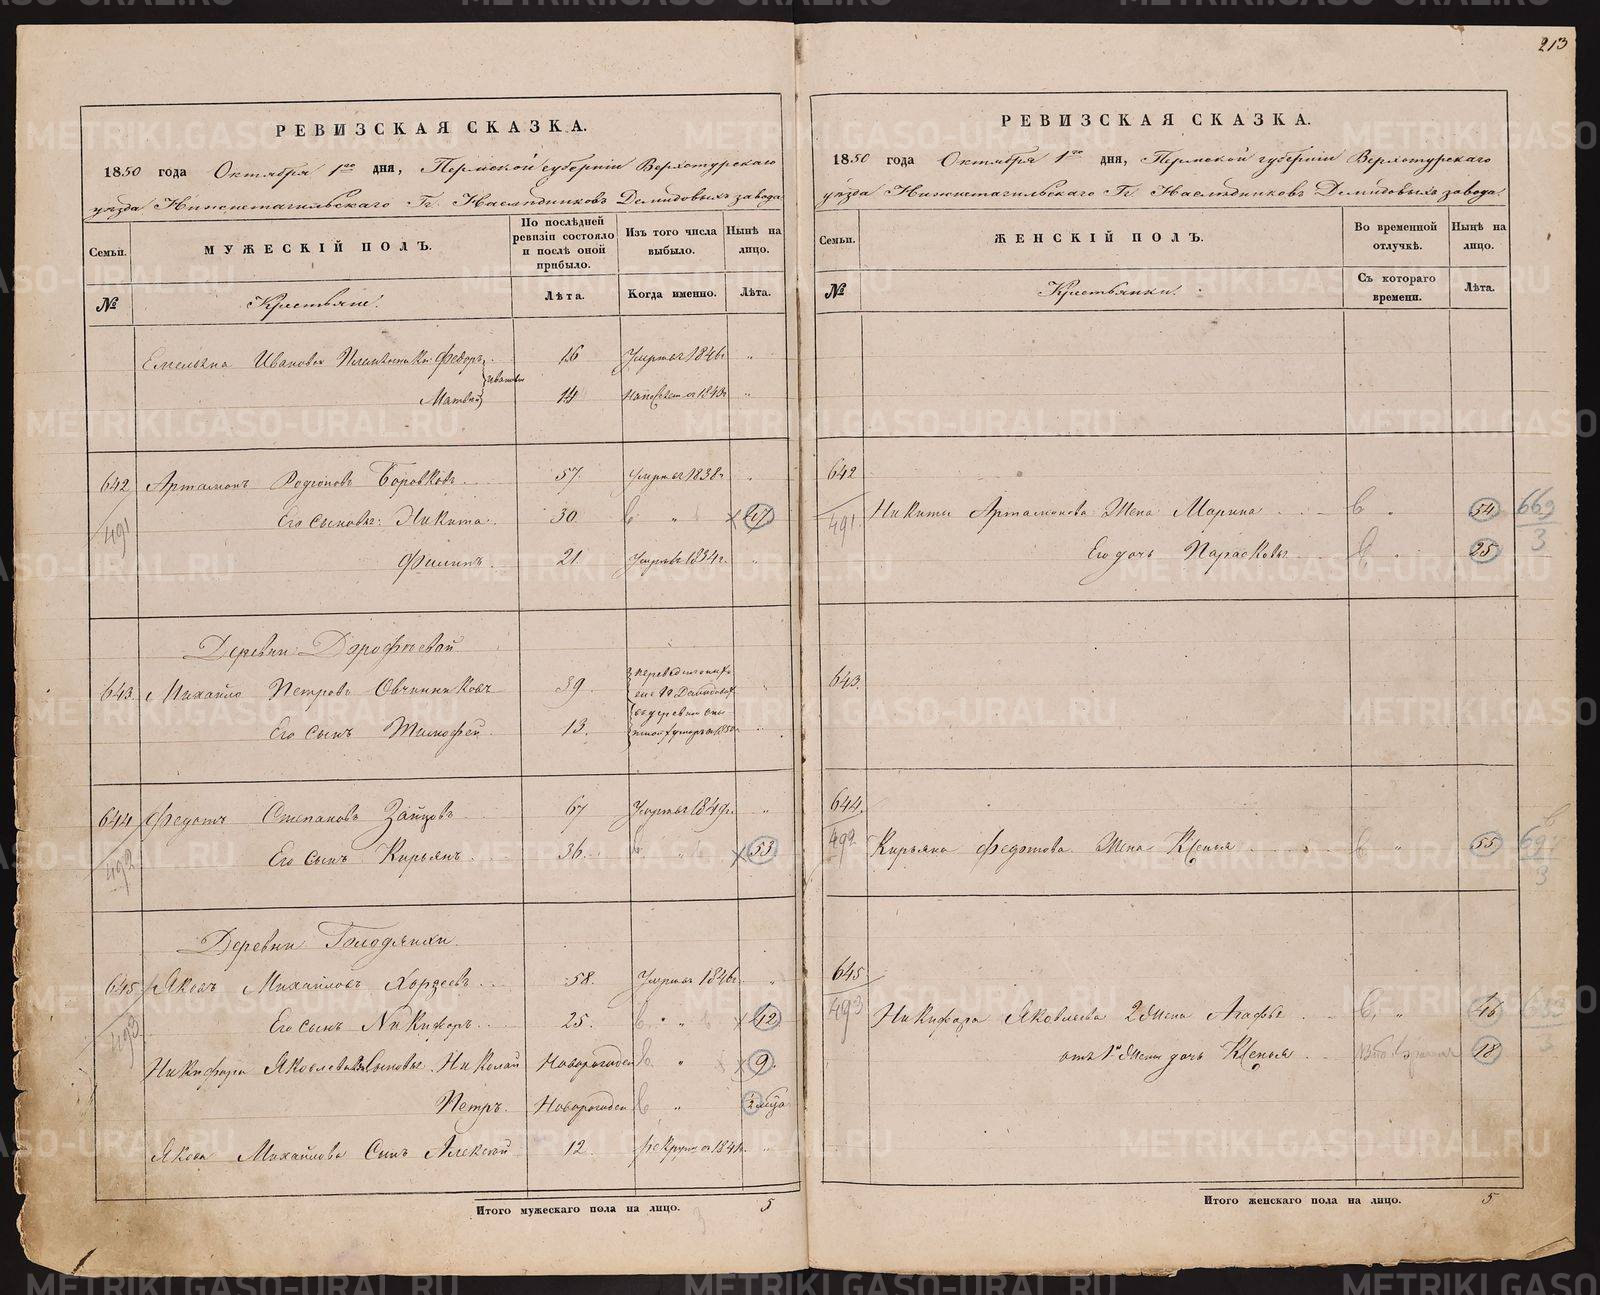 213
РЕВИЗСКАЯ СКАЗКА.
1850 года Октября 1го дня, Пермской губерніи Верхотурскаго
уѣзда Нижнетагильскаго Гг. Наслѣдниковъ Демидовыхъ завода
Семьи. МУЖЕСКІЙ ПОЛЪ. По послѣдней ревизіи состояло и послѣ оной прибыло. Изъ того числа выбыло. Нынѣ на лицо.
№ Крестьяне. Лѣта. Когда именно. Лѣта.
Емельяна Иванова Племянники: Федоръ 16 Умеръ 1846г „
Матвей Ивановы 14 1843г „
642 Артамонъ Родіоновъ Боровковъ 57. Умеръ 1838г „
491 Его сыновья: Никита 30 „ 47
Филипъ 21 Умеръ 1834г. „
Деревни Дорофѣевой
643. Михайло Петровъ Овчинниковъ 39
Его сынъ Тимофей 13.
644 Федотъ Степановъ Зайцовъ 67 Умеръ 1849г. „
492 Его сынъ Кирьянъ 36. „ 53
Деревни Голодянки
645 Яковъ Михайловъ Хардеевъ 58. Умеръ 1846г. „
493 Его сынъ Никифоръ 25. „ 42
Никифора Яковлева Сыновья Николай Новорожден „ 9
Петръ. Новорожден „ 2 мѣсяца
Якова Михайлова Сынъ Алексѣй 12. Рекрутъ 1841г. „
Итого мужескаго пола на лицо. 5
РЕВИЗСКАЯ СКАЗКА.
1850 года Октября 1го дня, Пермской губерніи Верхотурскаго
уѣзда Нижнетагильскаго Гг. Наслѣдниковъ Демидовыхъ завода.
Семьи. ЖЕНСКІЙ ПОЛЪ. Во временной отлучкѣ. Нынѣ на лицо.
№ Крестьянки. Съ котораго времени. Лѣта.
642
491 Никиты Артамонова Жена Марина „ 54
Его дочь Парасковья 25
669
3
643.
644.
492 Кирьяна Федотова Жена Ксенья „ 55
3
645
493 Никифора Яковлева 2 Жена Агафья „ 46
отъ 1й Жены дочь Ксенья 18
Итого женскаго пола на лицо. 5
METRIKI.GASO-URAL.RU